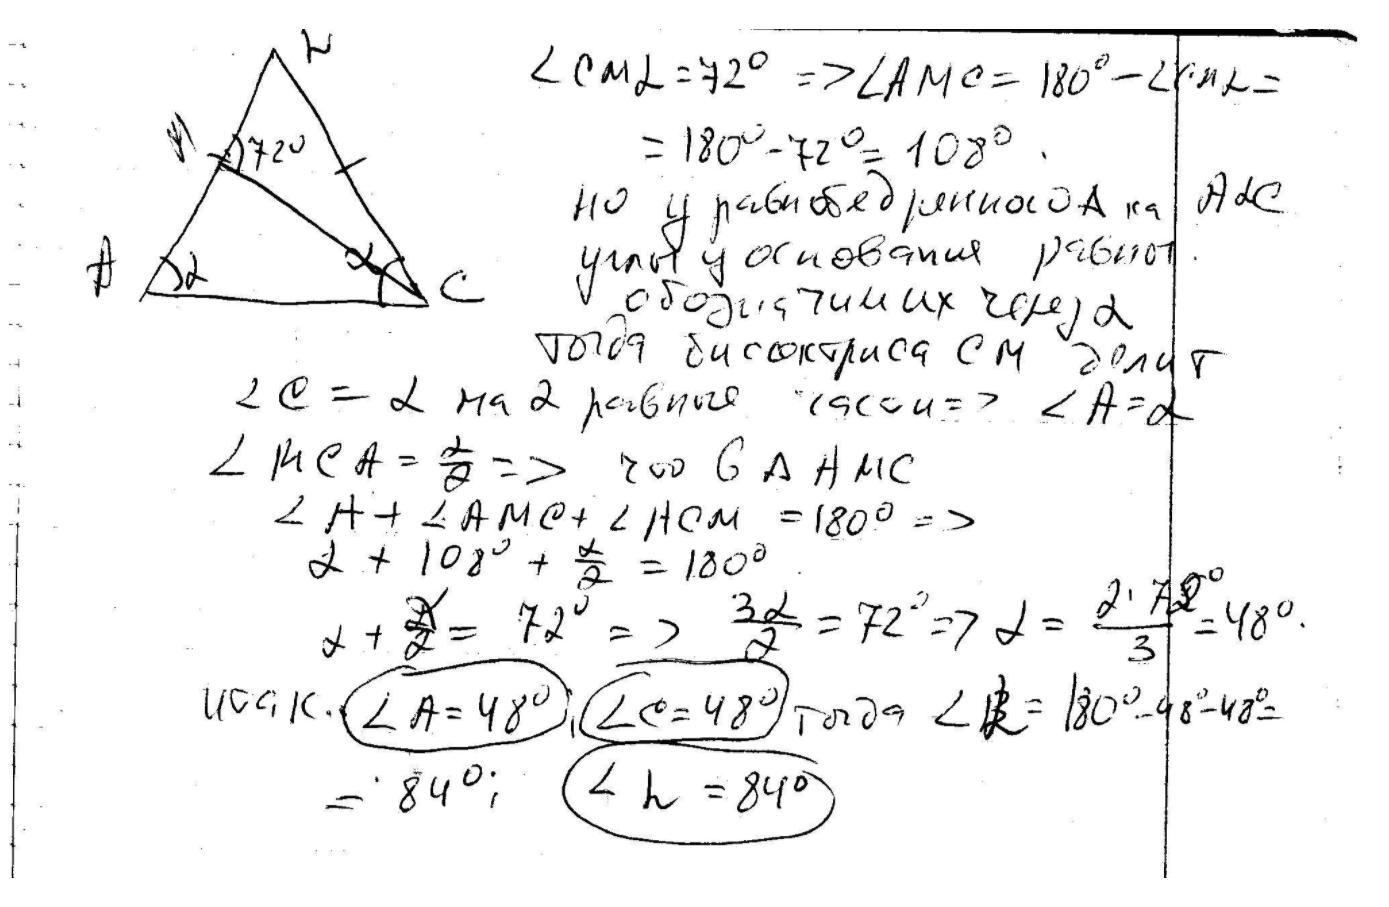 L
M
72°
A
α
α
C
∠CML = 72° => ∠AMC = 180° - ∠CML =
= 180° - 72° = 108°.
но у равнобедренного Δ ка ALC
углы у основания равны.
обозначим их через α
тогда биссктриса CM делит
∠C = α на 2 равные части => ∠A = α
∠MCA = α/2 => что в Δ AMC
∠A + ∠AMC + ∠ACM = 180° =>
α + 108° + α/2 = 180°
α + α/2 = 72° => 3α/2 = 72° => α = 2·72°/3 = 48°.
итак. ∠A = 48°; ∠C = 48° тогда ∠L = 180° - 48° - 48° =
= 84°; ∠L = 84°